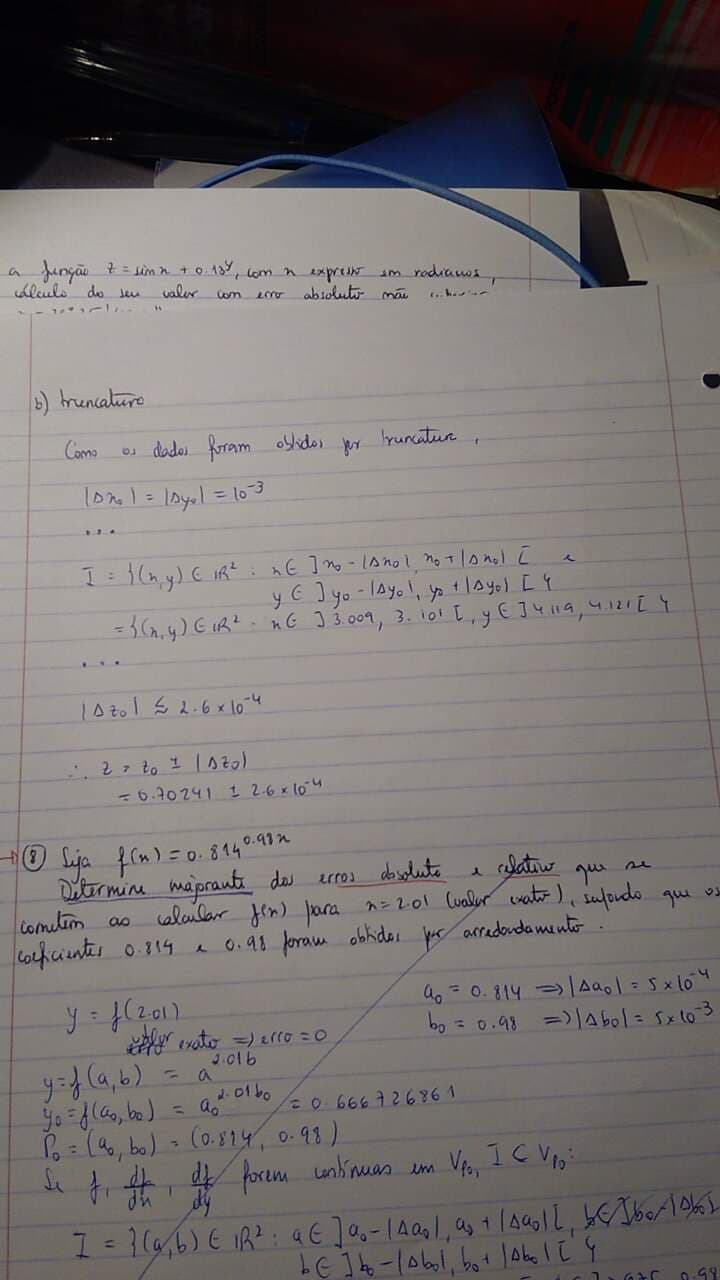 a função z = sin x + 0.13y, com x expresso em radianos,
cálculo do seu valor com erro absoluto não
b) truncatura
Como os dados foram obtidos por truncatura,
|Δx₀| = |Δy₀| = 10⁻³
...
I = {(x,y) ∈ ℝ² : x ∈ ]x₀ - |Δx₀|, x₀ + |Δx₀| [ e
y ∈ ]y₀ - |Δy₀|, y₀ + |Δy₀| [ }
= {(x,y) ∈ ℝ² : x ∈ ]3.009, 3.101 [, y ∈ ]4.119, 4.121 [ }
...
|Δz₀| ≲ 2.6 × 10⁻⁴
∴ z = z₀ ± |Δz₀|
= 0.70241 ± 2.6 × 10⁻⁴
→ ⑧ Seja f(x) = 0.814^0.98x
Determine majorante dos erros absoluto e relativo que se
cometem ao calcular f(x) para x = 2.01 (valor exato), supondo que os
coeficientes 0.814 e 0.98 foram obtidos por arredondamento.
y = f(2.01)
valor exato ⇒ erro = 0
a₀ = 0.814 ⇒ |Δa₀| = 5 × 10⁻⁴
b₀ = 0.98 ⇒ |Δb₀| = 5 × 10⁻³
y = f(a,b) = a^2.01b
y₀ = f(a₀,b₀) = a₀^2.01b₀ = 0.666726861
P₀ = (a₀, b₀) = (0.814, 0.98)
Se f, df/dx, df/dy forem contínuas em Vp₀, I ⊂ Vp₀:
I = {(a,b) ∈ ℝ² : a ∈ ]a₀ - |Δa₀|, a₀ + |Δa₀| [, b ∈ ]b₀ - |Δb₀|
b ∈ ]b₀ - |Δb₀|, b₀ + |Δb₀| [ }